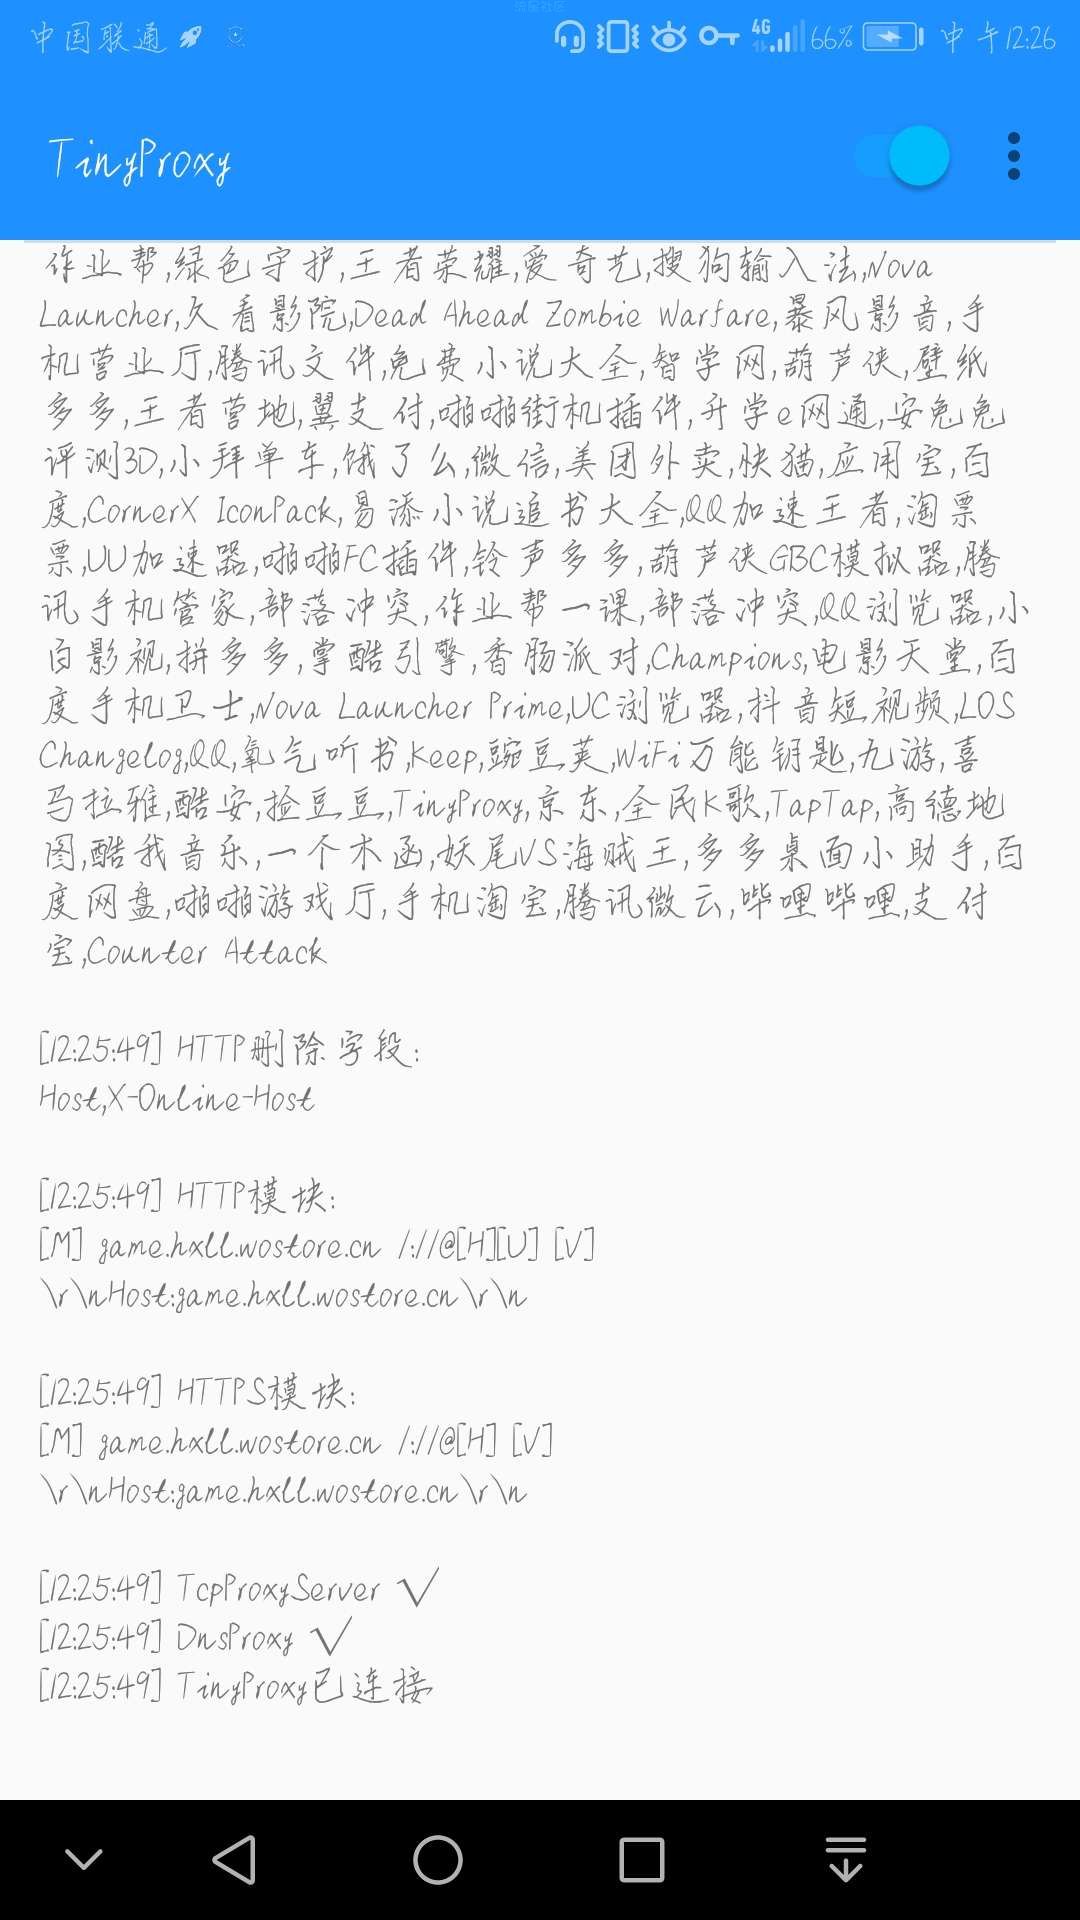 流星社区
中国联通 4G 66% 中午12:26
TinyProxy
作业帮,绿色守护,王者荣耀,爱奇艺,搜狗输入法,Nova
Launcher,久看影院,Dead Ahead Zombie Warfare,暴风影音,手
机营业厅,腾讯文件,免费小说大全,智学网,葫芦侠,壁纸
多多,王者营地,翼支付,啪啪街机插件,升学e网通,安兔兔
评测3D,小拜单车,饿了么,微信,美团外卖,快猫,应用宝,百
度,CornerX IconPack,易添小说追书大全,QQ加速王者,淘票
票,UU加速器,啪啪FC插件,铃声多多,葫芦侠GBC模拟器,腾
讯手机管家,部落冲突,作业帮一课,部落冲突,QQ浏览器,小
白影视,拼多多,掌酷引擎,香肠派对,Champions,电影天堂,百
度手机卫士,Nova Launcher Prime,UC浏览器,抖音短视频,LOS
Changelog,QQ,氧气听书,Keep,豌豆荚,WiFi万能钥匙,九游,喜
马拉雅,酷安,捡豆豆,TinyProxy,京东,全民K歌,TapTap,高德地
图,酷我音乐,一个木函,妖尾VS海贼王,多多桌面小助手,百
度网盘,啪啪游戏厅,手机淘宝,腾讯微云,哔哩哔哩,支付
宝,Counter Attack
[12:25:49] HTTP删除字段:
Host,X-Online-Host
[12:25:49] HTTP模块:
[M] game.hxll.wostore.cn /://@[H][U] [V]
\r\nHost:game.hxll.wostore.cn\r\n
[12:25:49] HTTPS模块:
[M] game.hxll.wostore.cn /://@[H] [V]
\r\nHost:game.hxll.wostore.cn\r\n
[12:25:49] TcpProxyServer √
[12:25:49] DnsProxy √
[12:25:49] TinyProxy已连接